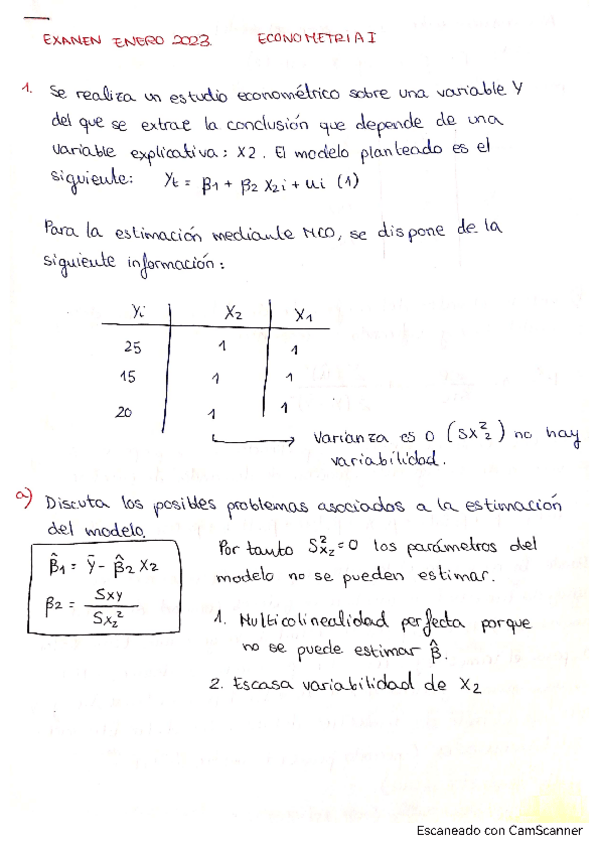 EXAMEN ENERO 2023. ECONOMETRIA I
1. Se realiza un estudio econométrico sobre una variable Y
del que se extrae la conclusión que depende de una
variable explicativa: X2. El modelo planteado es el
siguiente: Yt = β1 + β2 X2i + ui (1)
Para la estimación mediante MCO, se dispone de la
siguiente información:
Yi X2 X1
25 1 1
15 1 1
20 1 1
→ Varianza es 0 (Sx2²) no hay
variabilidad.
a) Discuta los posibles problemas asociados a la estimación
del modelo.
β̂1 = ȳ - β̂2 X2
β2 = Sxy / Sx2²
Por tanto Sx2² = 0 los parámetros del
modelo no se pueden estimar.
1. Multicolinealidad perfecta porque
no se puede estimar β̂.
2. Escasa variabilidad de X2
Escaneado con CamScanner